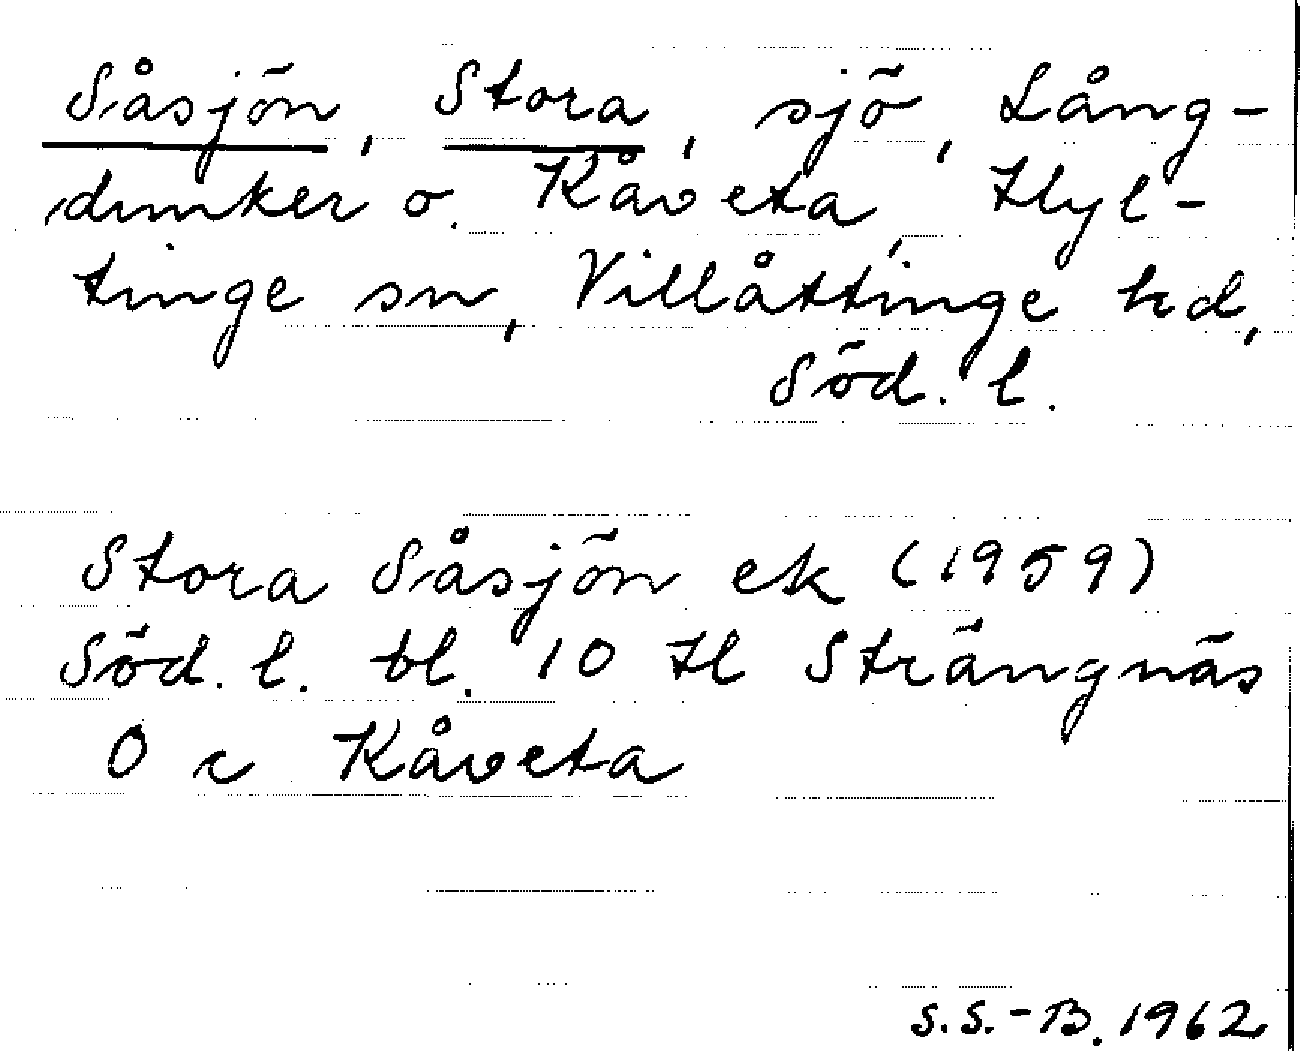 Såsjön, Stora, sjö, Lång-
dunker o. Kåveta, Hyl-
tinge sn, Villåttinge hd,
Söd. l.
Stora Såsjön ek (1959)
Söd. l. bl. 10 H Strängnäs
O c Kåveta
S.S.-B. 1962